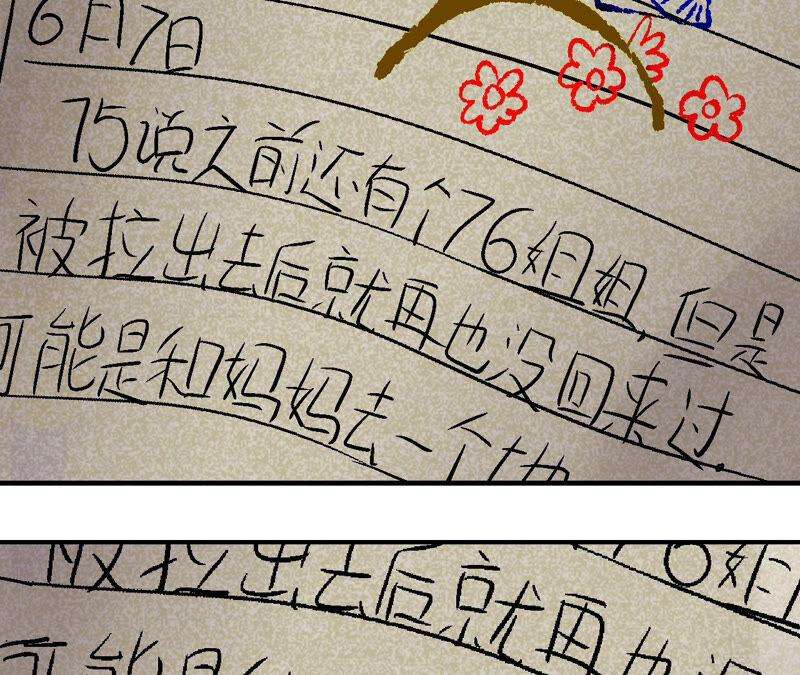 6月7日
75说之前还有个76姐姐,但是
被拉出去后就再也没回来过.
可能是和妈妈去一个地
76姐
被拉出去后就再也没
可能是